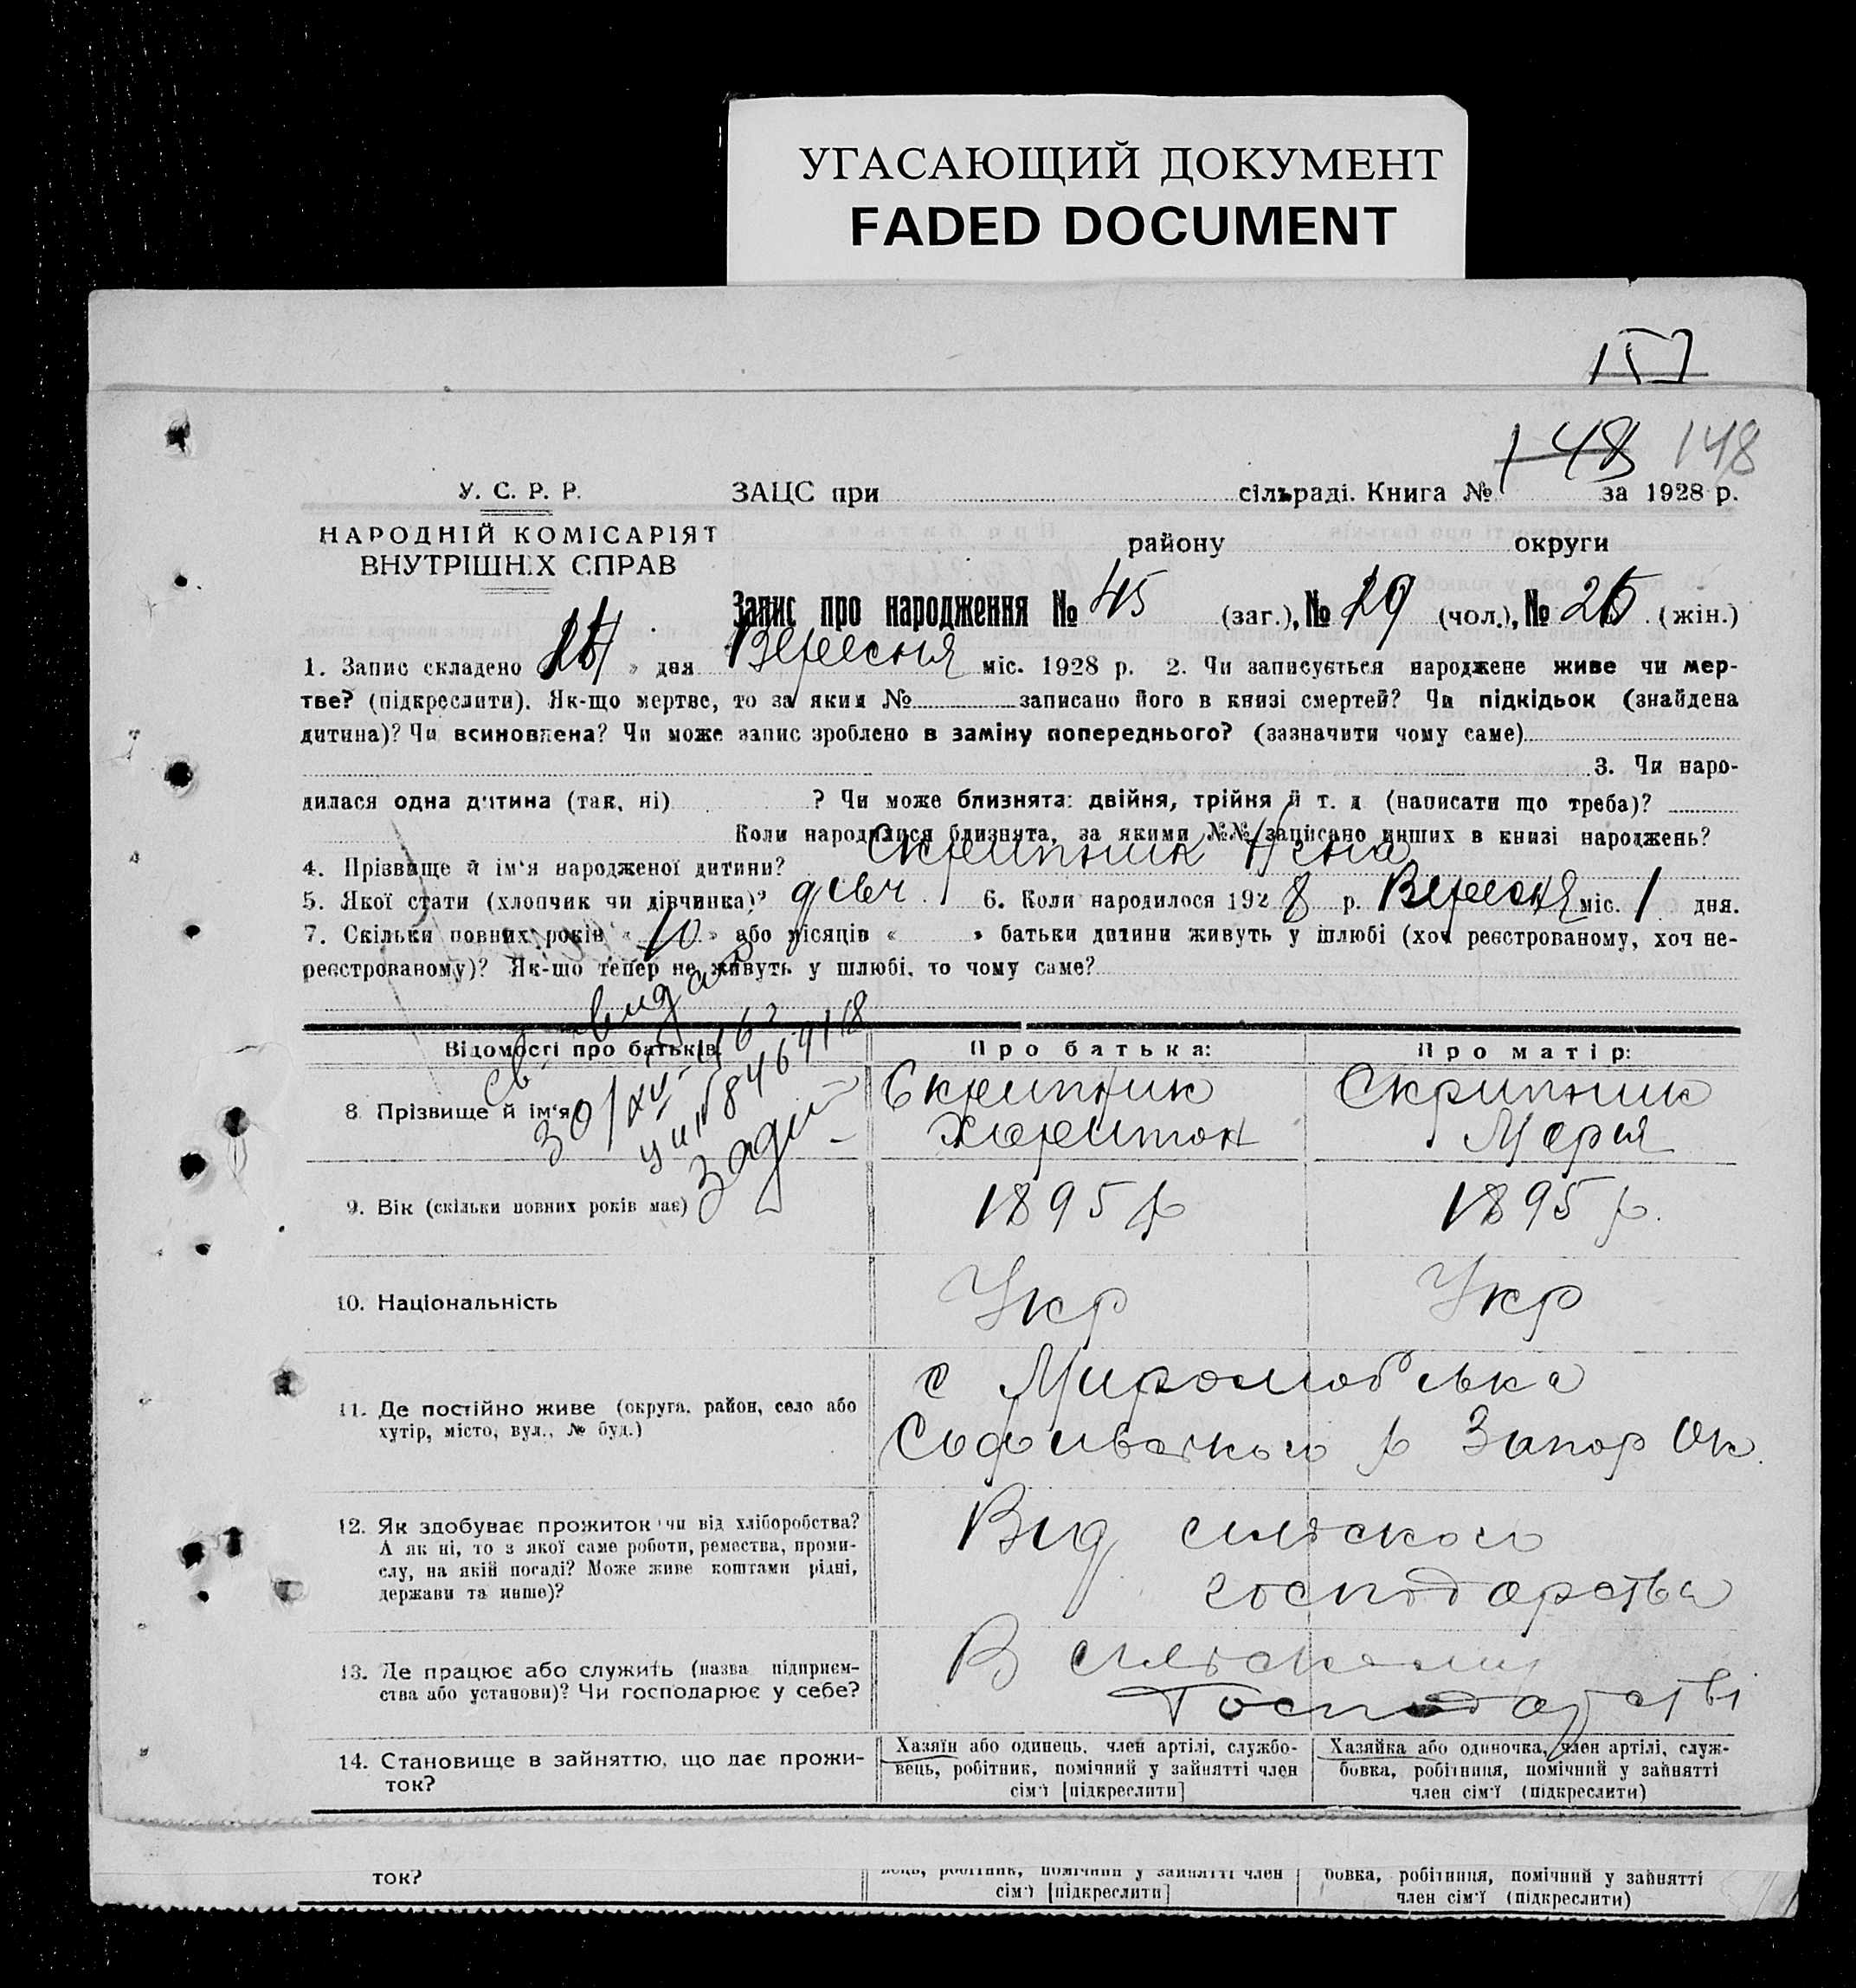 УГАСАЮЩИЙ ДОКУМЕНТ
FADED DOCUMENT
148 148
У. С. Р. Р.
НАРОДНІЙ КОМІСАРІЯТ
ВНУТРІШНІХ СПРАВ
ЗАЦС при сільраді. Книга № за 1928 р.
району округи
Запис про народження № 45 (заг.), № 19 (чол.), № 26 (жін.)
1. Запис складено » дня Вересня міс. 1928 р. 2. Чи записується народжене живе чи мер-
тве? (підкреслити). Як-що мертве, то за яким № записано його в книзі смертей? Чи підкідьок (знайдена
дитина)? Чи всиновлена? Чи може запис зроблено в заміну попереднього? (зазначити чому саме)
3. Чи наро-
дилася одна дитина (так, ні) ? Чи може близнята: двійня, трійня й т. д (написати що треба)?
Коли народилися близнята, за якими №№ записано инших в книзі народжень?
4. Прізвище й ім'я народженої дитини? Скрипник
5. Якої стати (хлопчик чи дівчинка)? девч. 6. Коли народилося 1928 р. Вересня міс. 1 дня.
7. Скільки повних років « 10 » або місяців « » батьки дитини живуть у шлюбі (хоч реєстрованому, хоч не-
реєстрованому)? Як-що тепер не живуть у шлюбі, то чому саме?
Св. видано
30/XII-
Відомості про батьків: Про батька: Про матір:
8. Прізвище й ім'я Скрипник Скрипник
Харитон Мария
9. Вік (скільки повних років має) 1895 р 1895 р.
10. Національність Укр Укр
11. Де постійно живе (округа, район, село або
хутір, місто, вул., № буд.)
с Миролюбівка
Софиевського р Запор Ок.
12. Як здобуває прожиток чи від хліборобства?
А як ні, то з якої саме роботи, ремества, проми-
слу, на якій посаді? Може живе коштами рідні,
держави та инше)?
Від сильского
господарства
13. Де працює або служить (назва підприєм-
ства або установи)? Чи господарює у себе?
В сильскому
Господарстві
14. Становище в зайняттю, що дає прожи-
ток?
Хазяїн або одинець, член артілі, службо-
вець, робітник, помічний у зайнятті член
сім'ї [підкреслити]
Хазяйка або одиночка, член артілі, служ-
бовка, робітниця, помічний у зайнятті
член сім'ї (підкреслити)
ток?
вець, робітник, помічний у зайнятті член
сім'ї [підкреслити]
бовка, робітниця, помічний у зайнятті
член сім'ї (підкреслити)